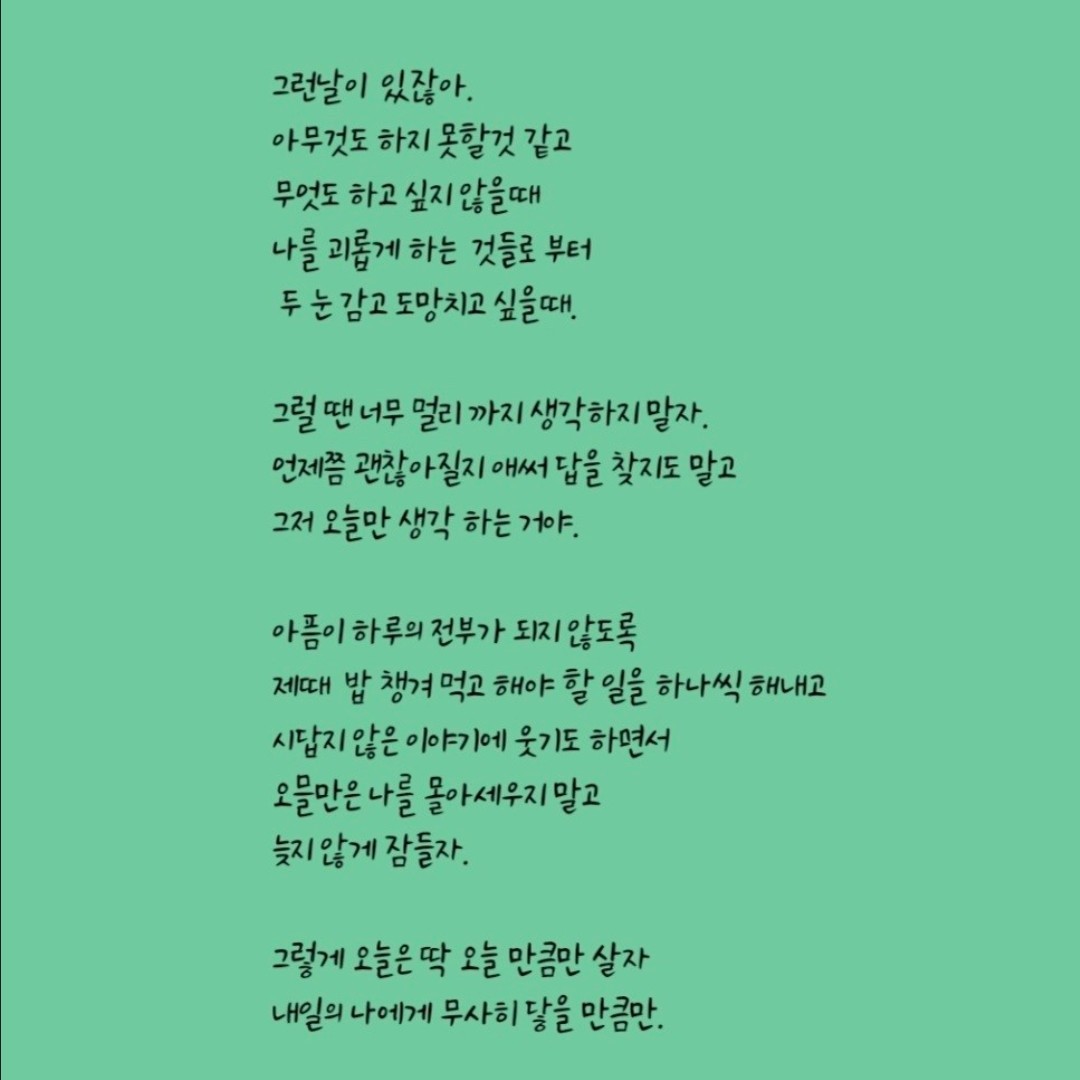 그런날이 있잖아.
아무것도 하지 못할것 같고
무엇도 하고 싶지 않을때
나를 괴롭게 하는 것들로 부터
두 눈 감고 도망치고 싶을때.
그럴 땐 너무 멀리 까지 생각하지 말자.
언제쯤 괜찮아질지 애써 답을 찾지도 말고
그저 오늘만 생각 하는 거야.
아픔이 하루의 전부가 되지 않도록
제때 밥 챙겨 먹고 해야 할 일을 하나씩 해내고
시답지 않은 이야기에 웃기도 하면서
오믈만은 나를 몰아세우지 말고
늦지 않게 잠들자.
그렇게 오늘은 딱 오늘 만큼만 살자
내일의 나에게 무사히 닿을 만큼만.